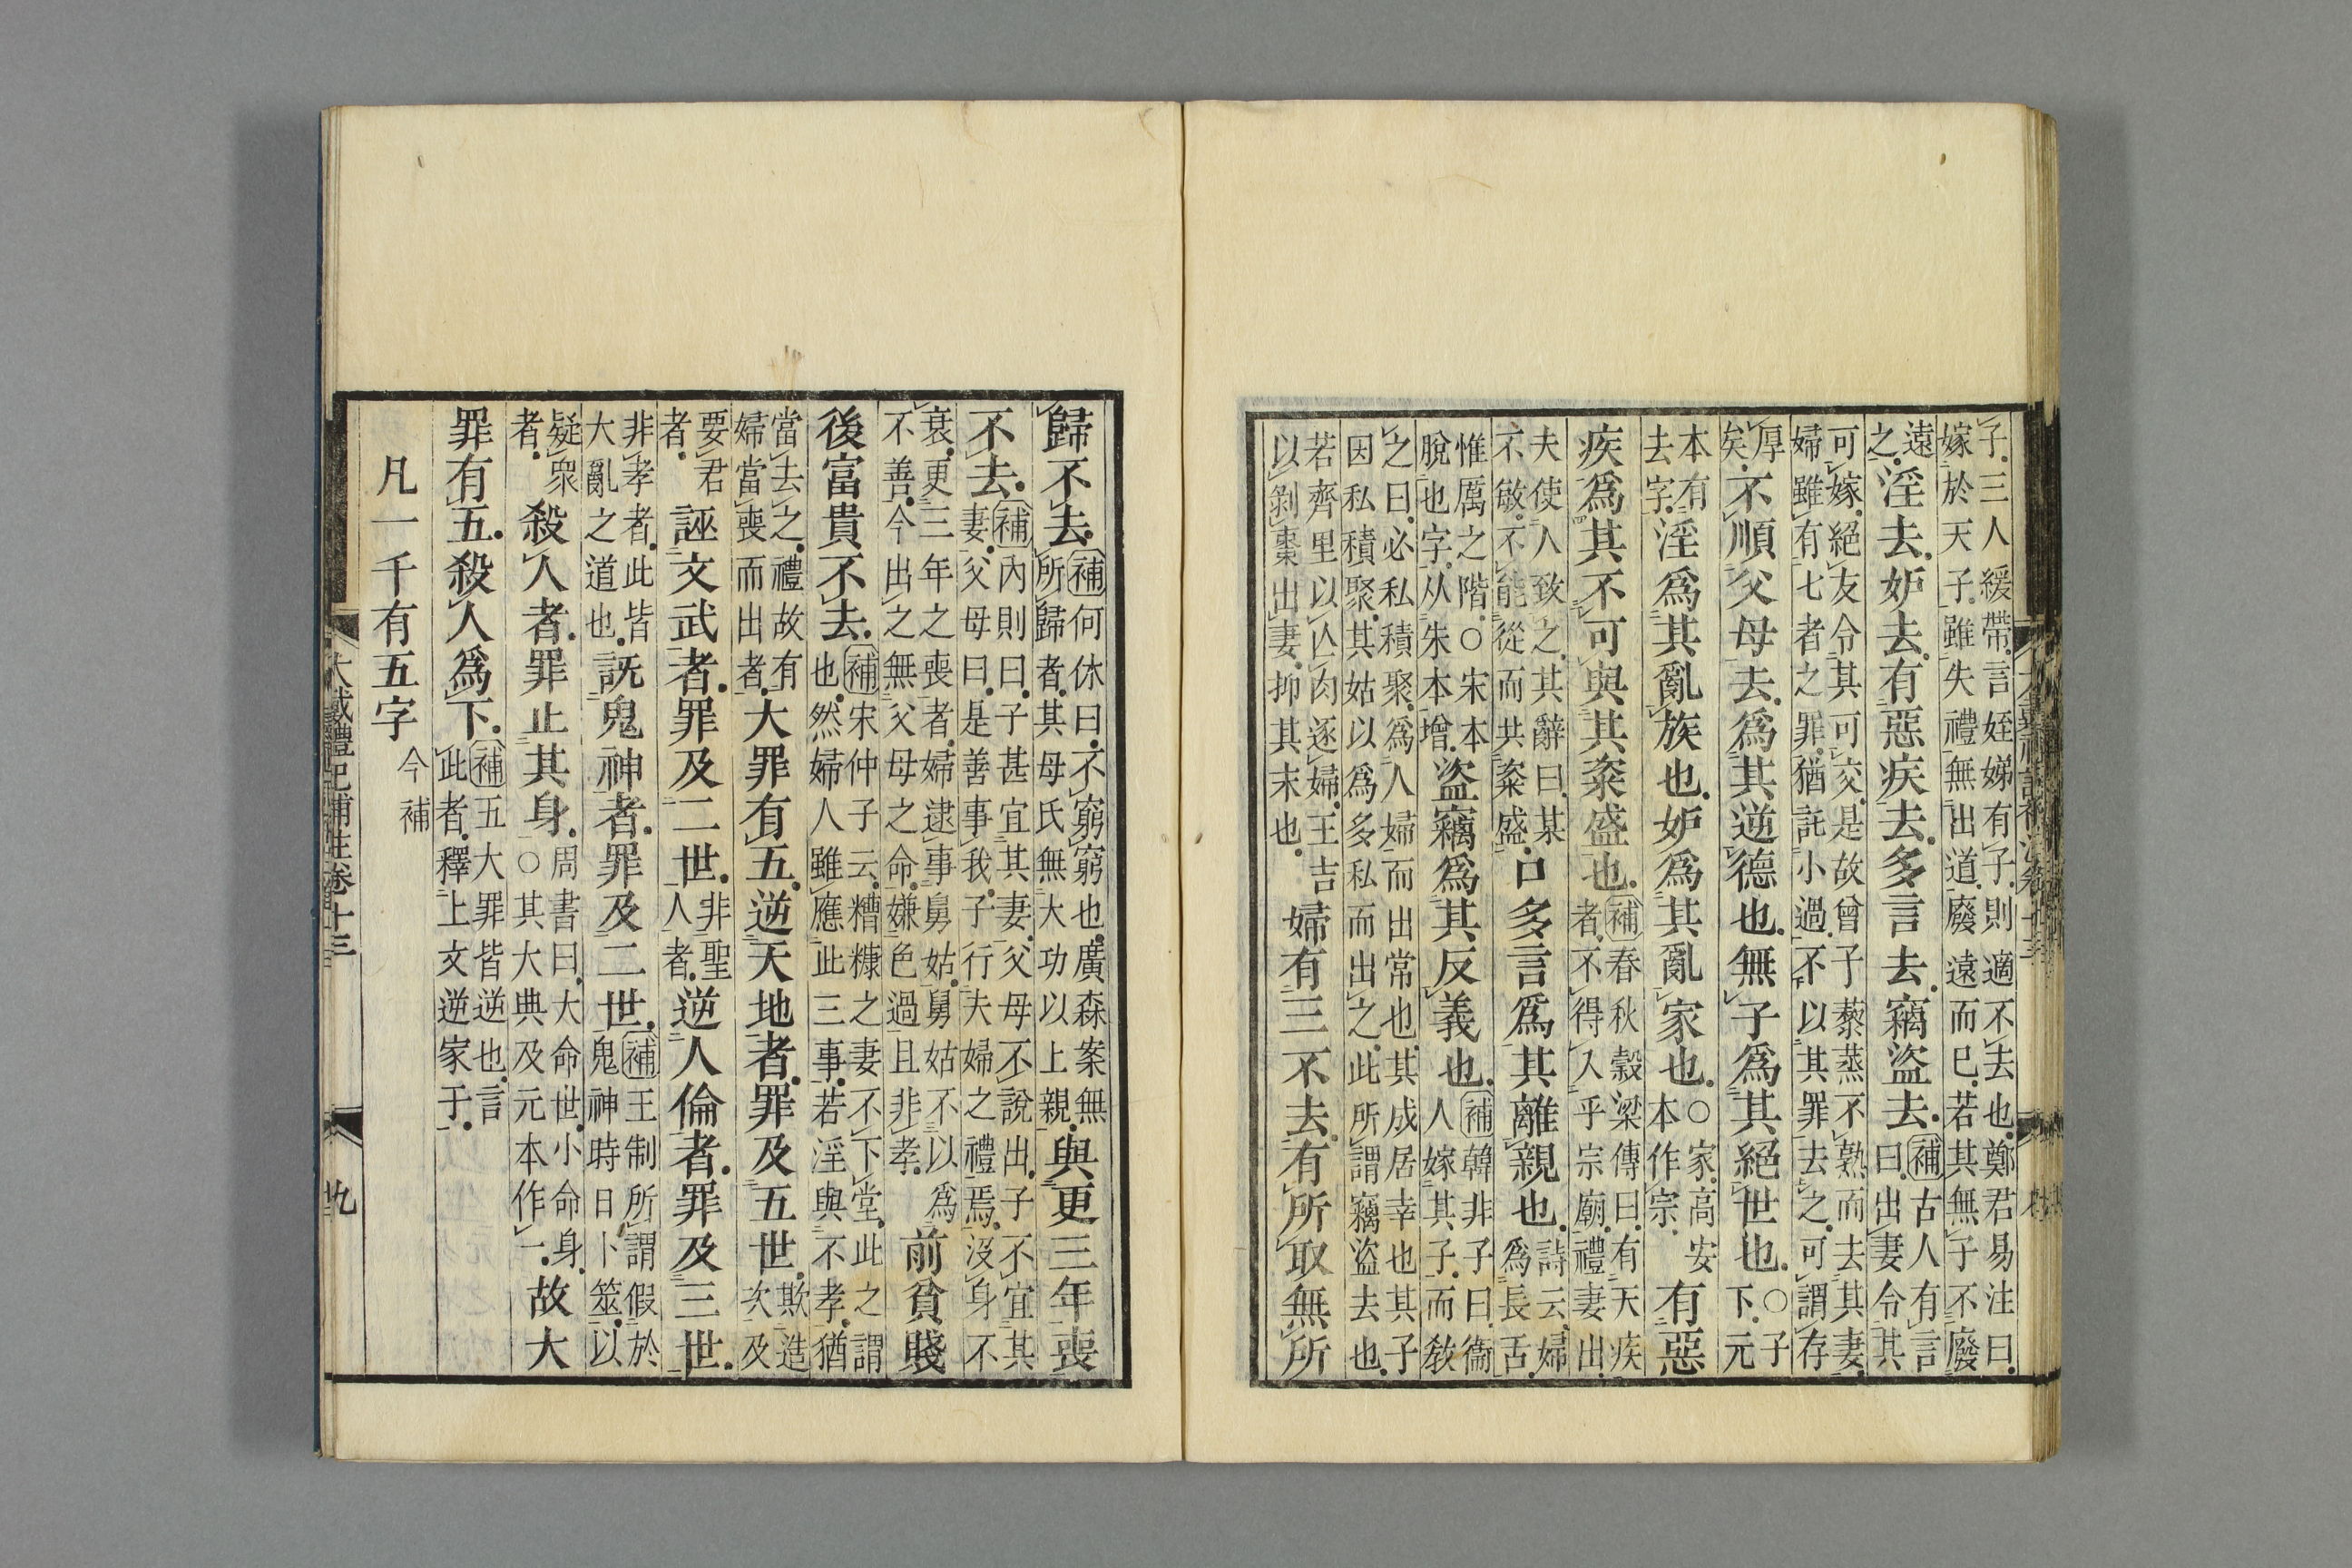 子三人緩帶言姪娣有子則適不去也鄭君易注曰
嫁於天子雖失禮無出道廢遠而已若其無子不廢
遠之淫去妒去有惡疾去多言去竊盜去補古人有言曰出妻令其
可嫁絕友令其可交是故曾子藜蒸不熟而去其妻
婦雖有七者之罪猶託小過不以其罪去之可謂存
厚矣不順父母去爲其逆德也無子爲其絕世也○子下元
本有去字淫爲其亂族也妒爲其亂家也○家高安本作宗有惡
疾爲其不可與其粢盛也補春秋穀梁傳曰有天疾者不得入乎宗廟禮妻出
夫使人致之其辭曰某不敏不能從而共粢盛口多言爲其離親也詩云婦爲長舌
惟厲之階○宋本脫也字从朱本增盜竊爲其反義也補韓非子曰衞人嫁其子而敎
之曰必私積聚爲人婦而出常也其成居幸也其子
因私積聚其姑以爲多私而出之此所謂竊盜去也
若齊里以亾肉逐婦王吉以剝棗出妻抑其末也婦有三不去有所取無所
歸不去補何休曰不窮窮也廣森案無所歸者其母氏無大功以上親與更三年喪
不去補內則曰子甚宜其妻父母不說出子不宜其妻父母曰是善事我子行夫婦之禮焉沒身不
衰更三年之喪者婦逮事舅姑舅姑不以爲不善今出之無父母之命嫌色過且非孝前貧賤
後富貴不去補宋仲子云糟糠之妻不下堂此之謂也然婦人雖應此三事若淫與不孝猶
當去之禮故有婦當喪而出者大罪有五逆天地者罪及五世欺造次及
要君者誣文武者罪及二世非聖人者逆人倫者罪及三世
非孝者此皆大亂之道也誣鬼神者罪及二世補王制所謂假於鬼神時日卜筮以
疑衆者殺人者罪止其身周書曰大命世小命身○其大典及元本作一故大
罪有五殺人爲下補五大罪皆逆也言此者釋上文逆家子
凡一千有五字今補
大戴禮記補注卷十三
九